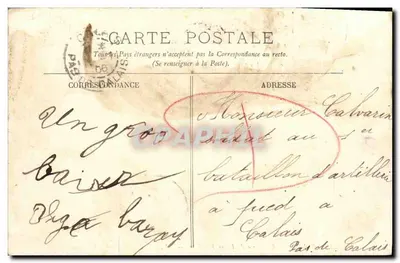 CARTE POSTALE
Tous les pays étrangers n'acceptent pas la Correspondance au recto.
(Se renseigner à la Poste).
CORRESPONDANCE
ADRESSE
PAS CALAIS
Un gros
baiser
Monsieur Calvarin
soldat au 1er
bataillon d'artillerie
à pied à
Calais
Pas de Calais